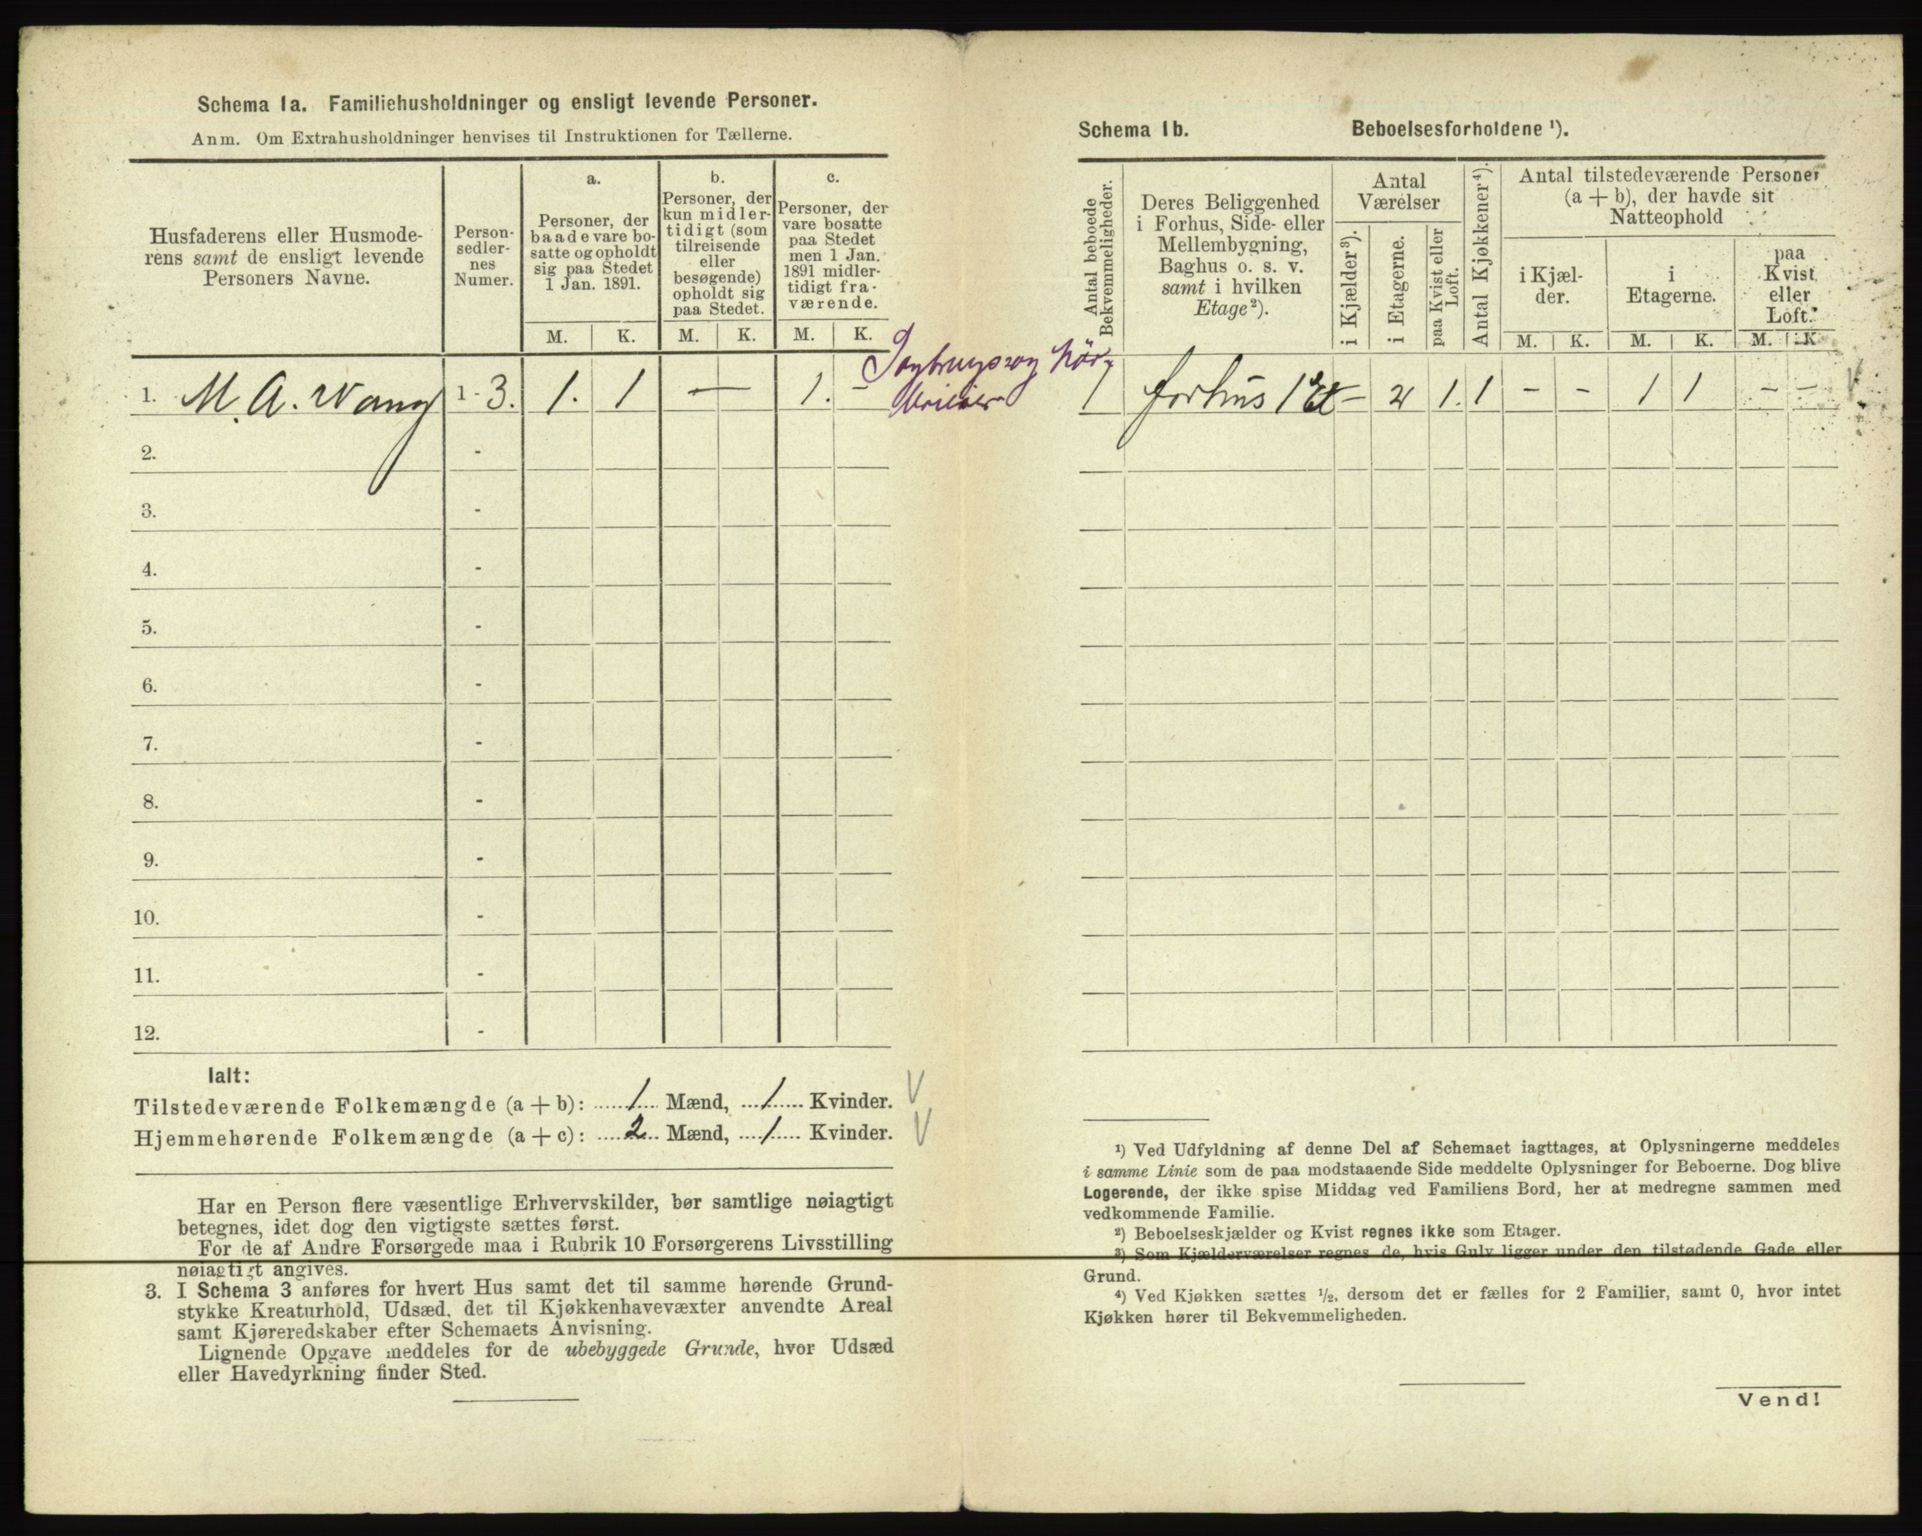 Schema 1a. Familiehusholdninger og ensligt levende Personer.
Anm. Om Extrahusholdninger henvises til Instruktionen for Tællerne.
Husfaderens eller Husmode-
rens samt de ensligt levende
Personers Navne.
Person-
sedler-
nes
Numer.
a.
Personer, der
baade vare bo-
satte og opholdt
sig paa Stedet
1 Jan. 1891.
b.
Personer, der
kun midler-
tidigt (som
tilreisende
eller
besøgende)
opholdt sig
paa Stedet.
c.
Personer, der
vare bosatte
paa Stedet
men 1 Jan.
1891 midler-
tidigt fra-
værende.
M. K. M. K. M. K.
1. M. A. Wang 1-3. 1. 1 — 1. -
2. -
3. -
4. -
5. -
6. -
7. -
8. -
9. -
10. -
11. -
12. -
Ialt:
Tilstedeværende Folkemængde (a + b): 1 Mænd, 1 Kvinder.
Hjemmehørende Folkemængde (a + c): 2 Mænd, 1 Kvinder.
Har en Person flere væsentlige Erhvervskilder, bør samtlige nøiagtigt
betegnes, idet dog den vigtigste sættes først.
For de af Andre Forsørgede maa i Rubrik 10 Forsørgerens Livsstilling
nøiagtigt angives.
3. I Schema 3 anføres for hvert Hus samt det til samme hørende Grund-
stykke Kreaturhold, Udsæd, det til Kjøkkenhavevæxter anvendte Areal
samt Kjøreredskaber efter Schemaets Anvisning.
Lignende Opgave meddeles for de ubebyggede Grunde, hvor Udsæd
eller Havedyrkning finder Sted.
Schema 1b. Beboelsesforholdene ¹).
Antal beboede
Bekvemmeligheder.
Deres Beliggenhed
i Forhus, Side- eller
Mellembygning,
Baghus o. s. v.
samt i hvilken
Etage²).
Antal
Værelser
i Kjælder³).
i Etagerne.
paa Kvist eller
Loft.
Antal Kjøkkener⁴).
Antal tilstedeværende Personer
(a + b), der havde sit
Natteophold
i Kjæl-
der.
i
Etagerne.
paa
Kvist
eller
Loft.
M. K. M. K. M. K.
1 forhus 1 Et - 2 1. 1 - - 1 1 - -
¹) Ved Udfyldning af denne Del af Schemaet iagttages, at Oplysningerne meddeles
i samme Linie som de paa modstaaende Side meddelte Oplysninger for Beboerne. Dog blive
Logerende, der ikke spise Middag ved Familiens Bord, her at medregne sammen med
vedkommende Familie.
²) Beboelseskjælder og Kvist regnes ikke som Etager.
³) Som Kjælderværelser regnes de, hvis Gulv ligger under den tilstødende Gade eller
Grund.
⁴) Ved Kjøkken sættes ½, dersom det er fælles for 2 Familier, samt 0, hvor intet
Kjøkken hører til Bekvemmeligheden.
Vend!